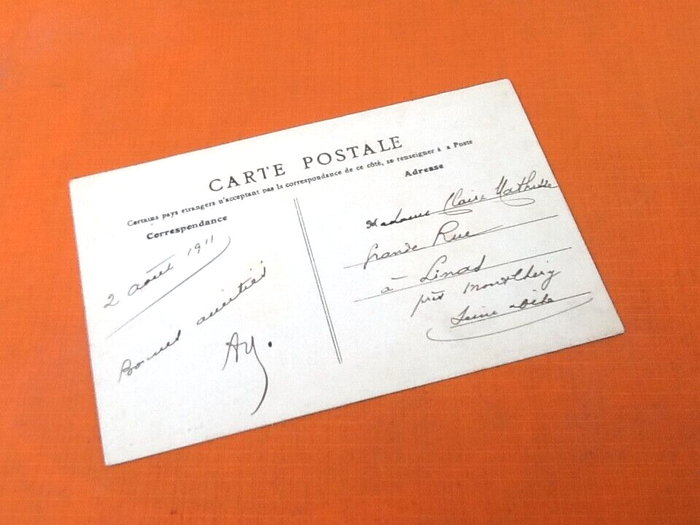 CARTE POSTALE
Certains pays étrangers n'acceptant pas la correspondance de ce côté, se renseigner à la Poste
Correspondance
2 août 1911
Bonnes amitiés
Ay.
Adresse
Madame Claire Mathilde
Grande Rue
à Linas
près Montlhéry
Seine-Oise